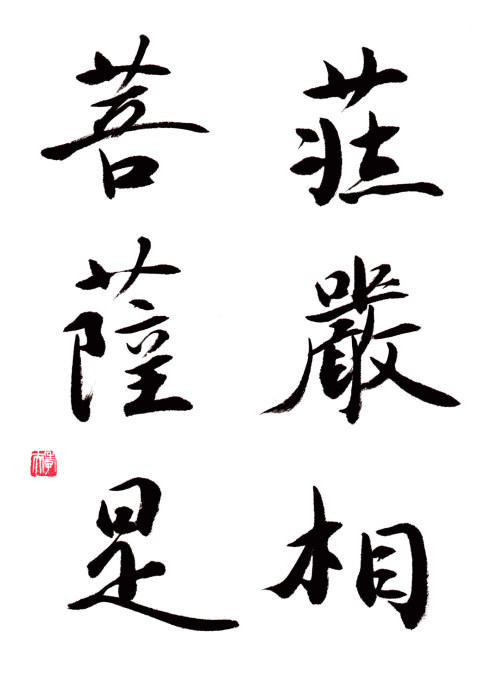 莊嚴相
菩薩是